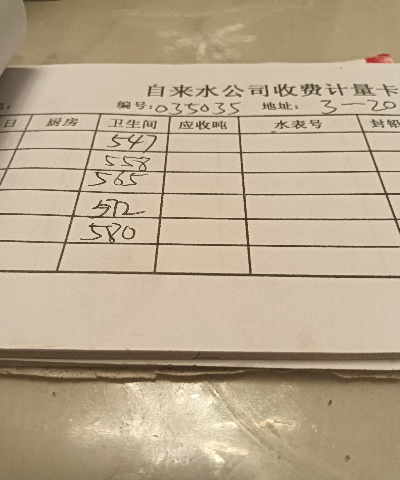 自来水公司收费计量卡
编号:035035 地址: 3-20
日 厨房 卫生间 应收吨 水表号 封铅
547
558
565
572
580